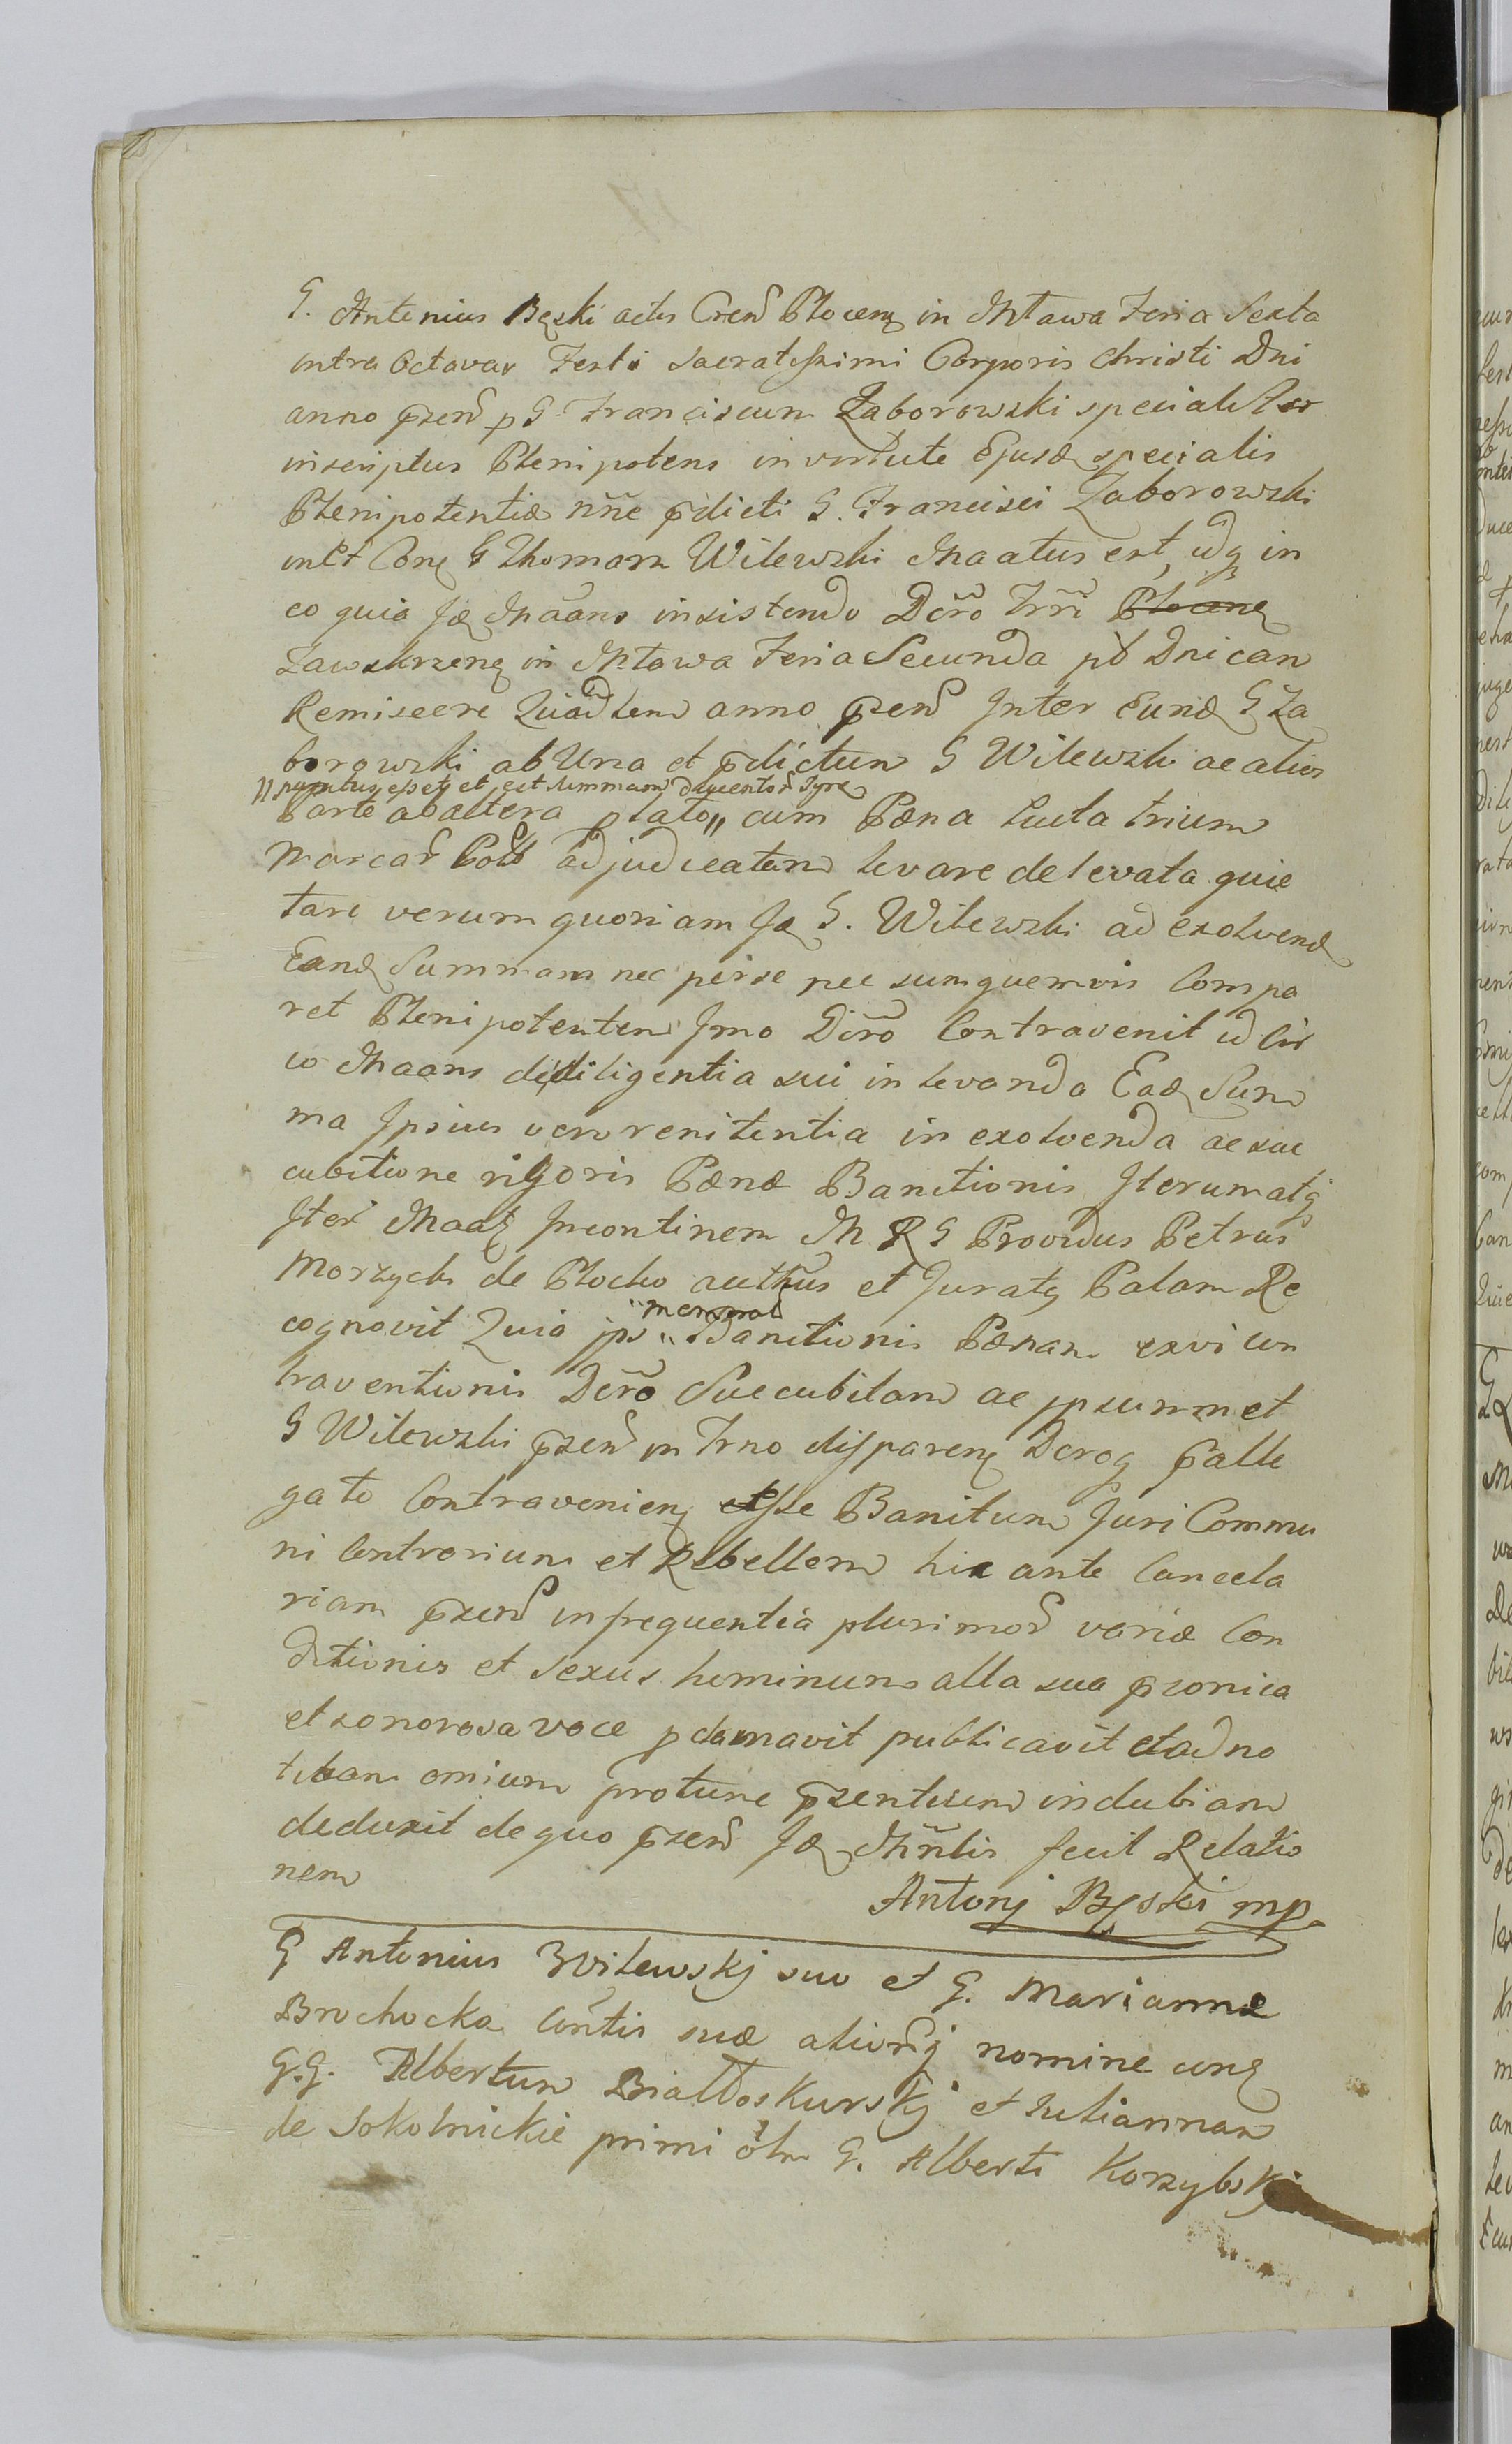 G. Antonius Bęski actis Cren̄ Plocen̄ in Mława Feria Sexta
intra Octavas Festi Sacratissimi Corporis Christi Dni
anno p̄sen̄ p G. Franciscum Zaborowski specialiter
inscriptus Plenipotens in virtute Ejusd̄ specialis
Plenipotentiæ nn̄e p̄dicti G. Francisci Zaborowski
Con̄ G Thomam Wilewski Maatus est, idq̄ in
eo quia Jd̄ Māans insistendo Dcr̄o Trr̄i Plocen̄
Zawskrzen̄ in Mława Feria Secunda pt̄ Dnicam
Reminiscere anno p̄sen̄ Inter Eund̄ G Za
borowski ab Una et p̄dictum G Wilewski ac alios
esset et est summam ducentor̄
Parte ab altera plato cum Pœna Lucta trium
Marcar̄ Pol̄ adjudicatam levare de levata quie
tare verum quoniam Jd̄ G. Wilewski ad exolvend̄
Eand̄ Summam nec per se nec sum quemvis Compa
ret Plenipotentem Imo Dcr̄o Contravenit id cir
co Maans de diligentia sui in levanda Ead̄ Sum
ma Ipsius vero renitentia in exolvenda ac suc
cubitione rigoris Pœnæ Banitionis Iterumatq̄
Iter̄ Maat̄ Incontinem M R G Providus Petrus
Morzych de Plocko auth̄us et Jurat̄ Palam Re
cognovit Quia jps̄
" Banitionis Pœnam ex vi con
traventionis Dcr̄o Succubitam ac jpsummet
G Wilewski p̄sen̄ in Trno disparen̄ Dcroq̄ p̄alle
gato Contravenien̄ esse Banitum Juri Commu
ni Contrarium et Rebellem hic ante Cancela
riam p̄sen̄ in frequentia plurimor̄ variæ Con
ditionis et sexus hominum alta sua p̄conica
et sonorosa voce pclamavit publicavit et ad no
titiam omium protunc p̄sentium indubiam
deduxit de quo p̄sen̄ Jd̄ Mn̄lis fecit Relatio
nem
Antonj Bęski mp.
G Antonius Wilewskj suo et G. Mariannæ
Brochocka Con̄tis suæ alior̄q̄ nomine con̄
G.G. Albertum Białłoskurskj et Juliannam
de Sokolnickie primi ol̄m G. Alberti Korzybskj